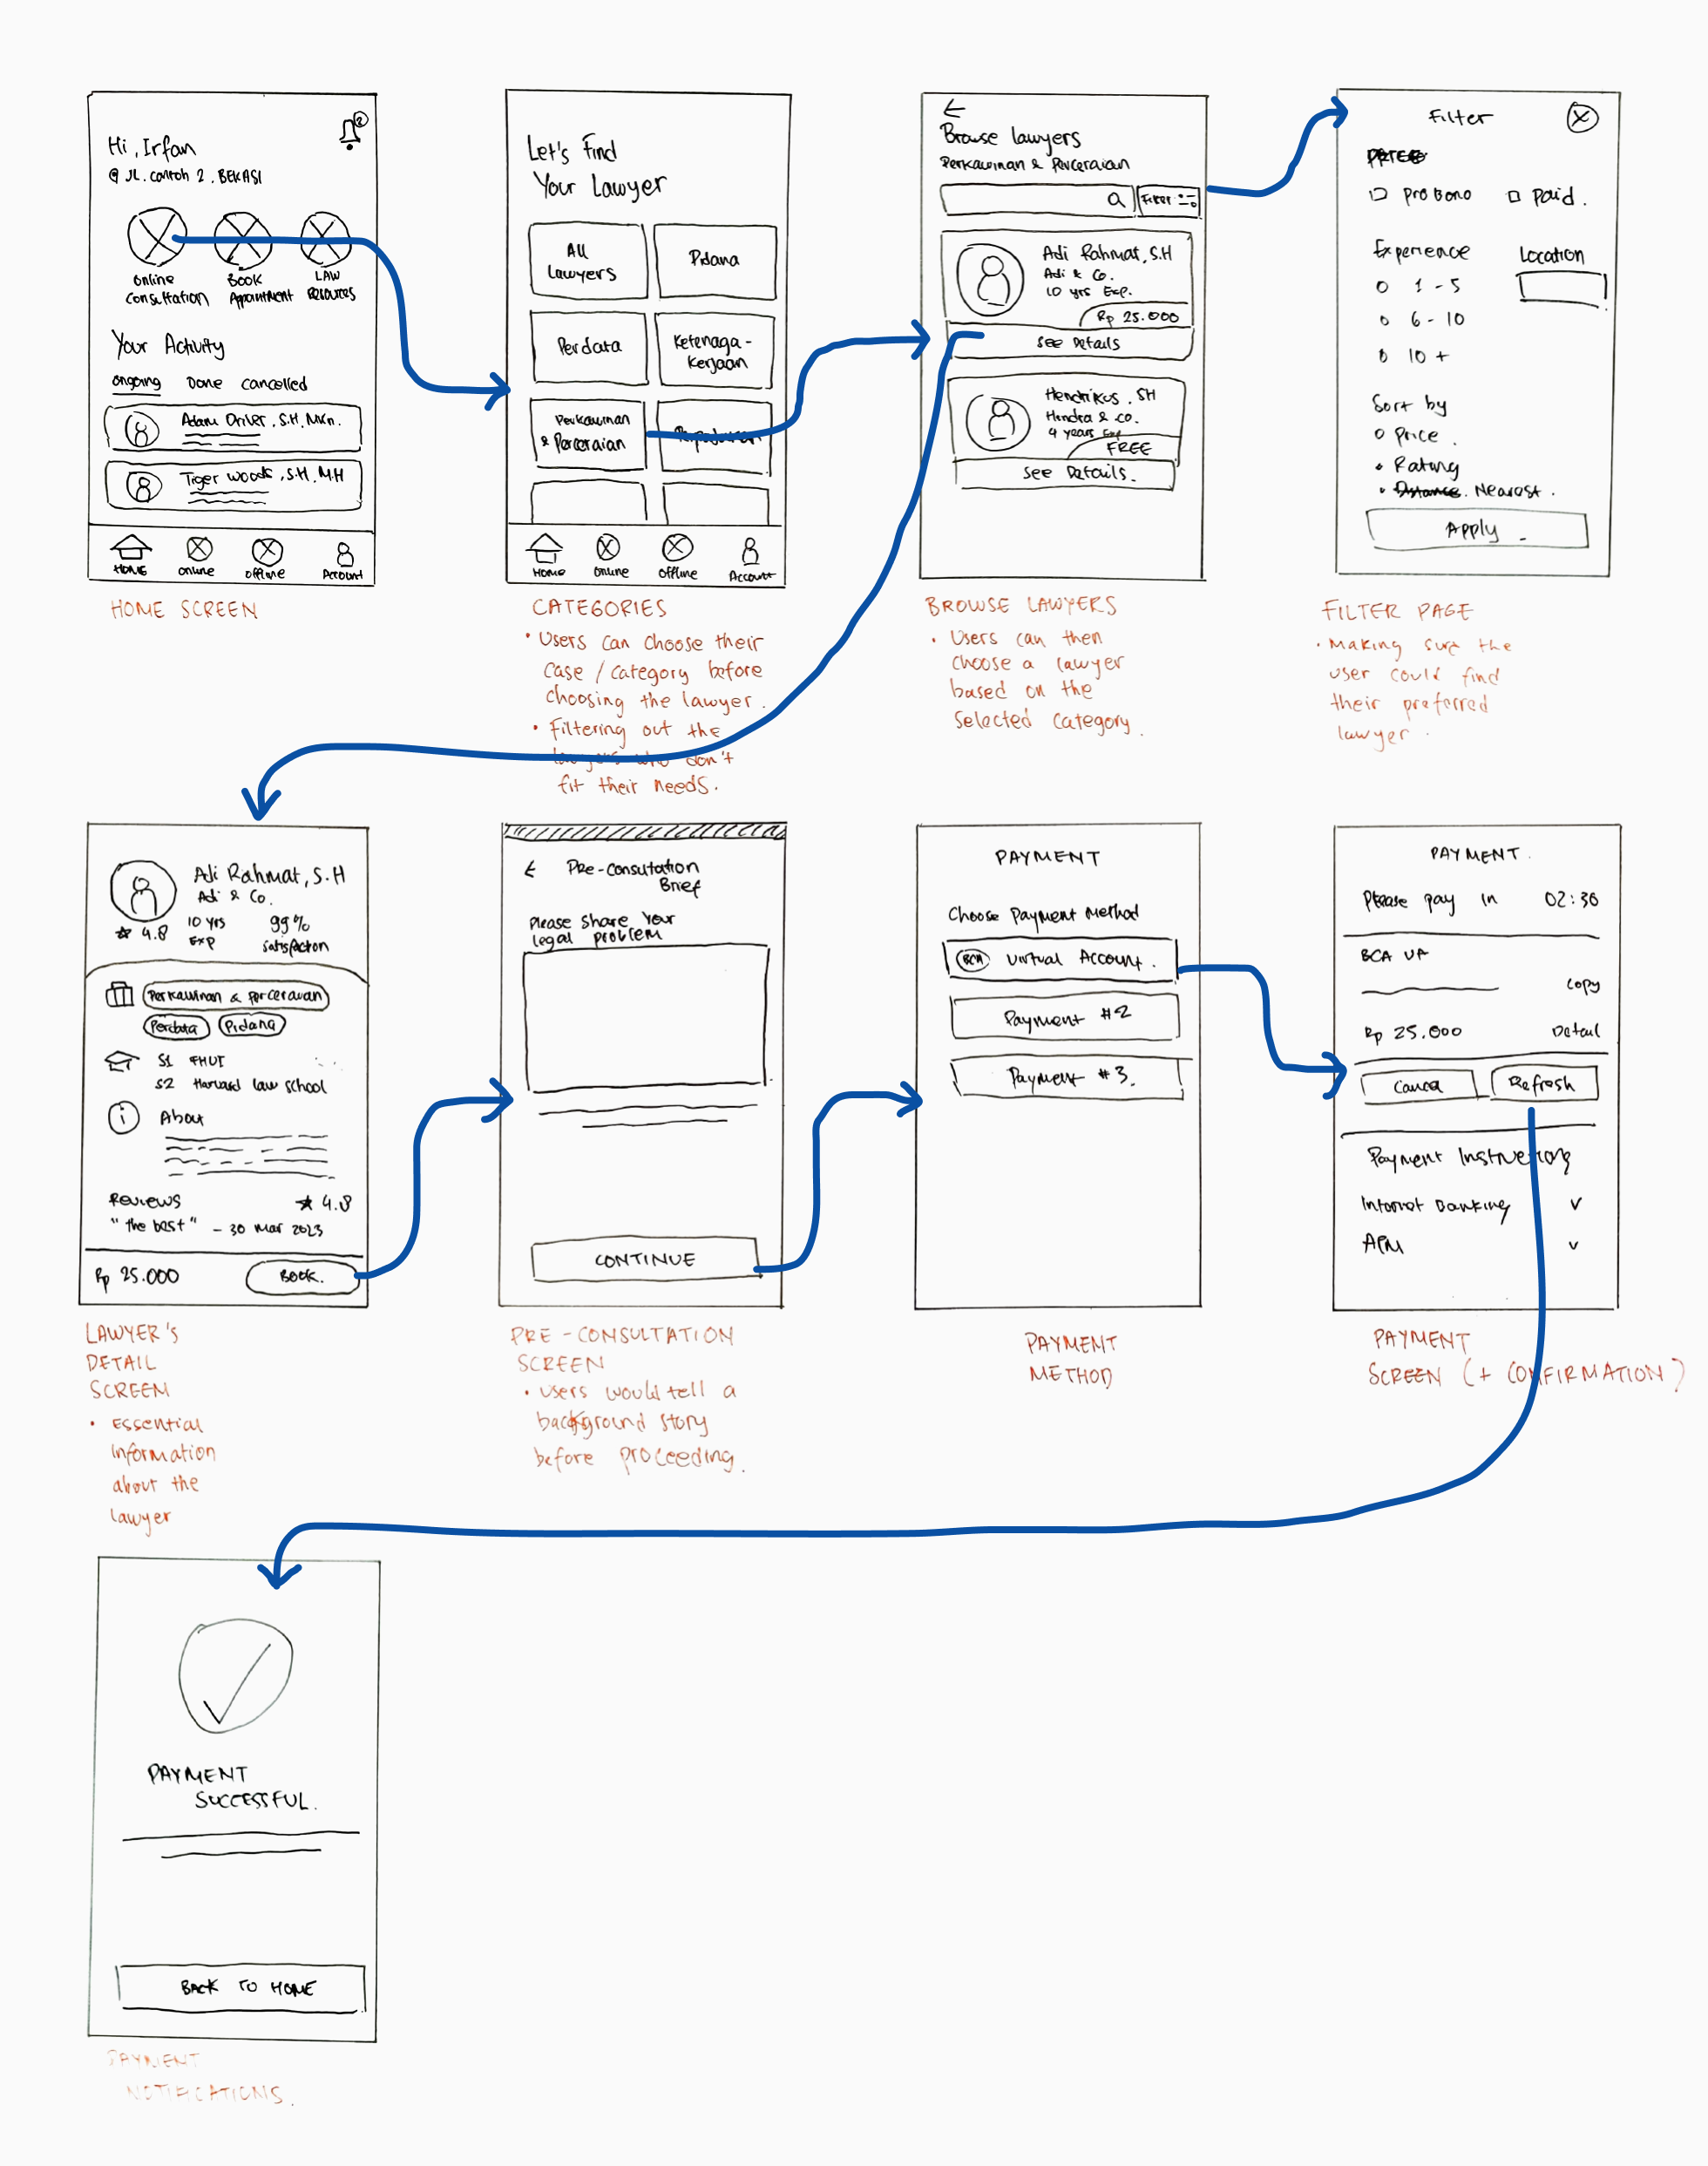 Hi, Irfan
2
@ JL. contoh 2. BEKASI
online consultation
Book Appointment
LAW Resources
Your Activity
ongoing Done cancelled
Adam Driver, S.H, MKn.
Tiger woods, S.H, M.H
HOME online offline Account
HOME SCREEN
Let's Find
Your Lawyer
All Lawyers
Pidana
Perdata
Ketenaga-
kerjaan
Perkawinan
& Perceraian
Home online offline Account
CATEGORIES
• Users can choose their
case / category before
choosing the lawyer.
• Filtering out the
lawyers who don't
fit their needs.
Browse lawyers
Perkawinan & Perceraian
Filter
Adi Rahmat, S.H
Adi & Co.
10 yrs Exp.
Rp 25.000
see Details
Hendrikus, SH
Hendra & co.
4 years Exp
FREE
see Details.
BROWSE LAWYERS
• Users can then
choose a lawyer
based on the
selected category.
Filter
probono paid.
Experience Location
1 - 5
6 - 10
10 +
Sort by
Price.
Rating
Distance. Nearest.
Apply
FILTER PAGE
• Making sure the
user could find
their preferred
lawyer.
Adi Rahmat, S.H
Adi & Co.
4.8
10 yrs
Exp
99%
satisfaction
Perkawinan & perceraian
Perdata Pidana
S1 FHUI
S2 Harvard law school
About
Reviews 4.8
"the best" - 30 Mar 2023
Rp 25.000 Book.
LAWYER'S
DETAIL
SCREEN
• Essential
information
about the
lawyer
Pre-consultation
Brief
please share your
legal problem
CONTINUE
PRE-CONSULTATION
SCREEN
• users would tell a
background story
before proceeding.
PAYMENT
Choose Payment Method
BCA virtual Account.
Payment #2
Payment #3.
PAYMENT
METHOD
PAYMENT.
Please pay in 02:30
BCA VA
copy
Rp 25.000 Detail
Cancel Refresh
Payment
Internet Banking
PAYMENT
SCREEN (+ CONFIRMATION)
PAYMENT
SUCCESSFUL.
BACK TO HOME
PAYMENT
NOTIFICATIONS.